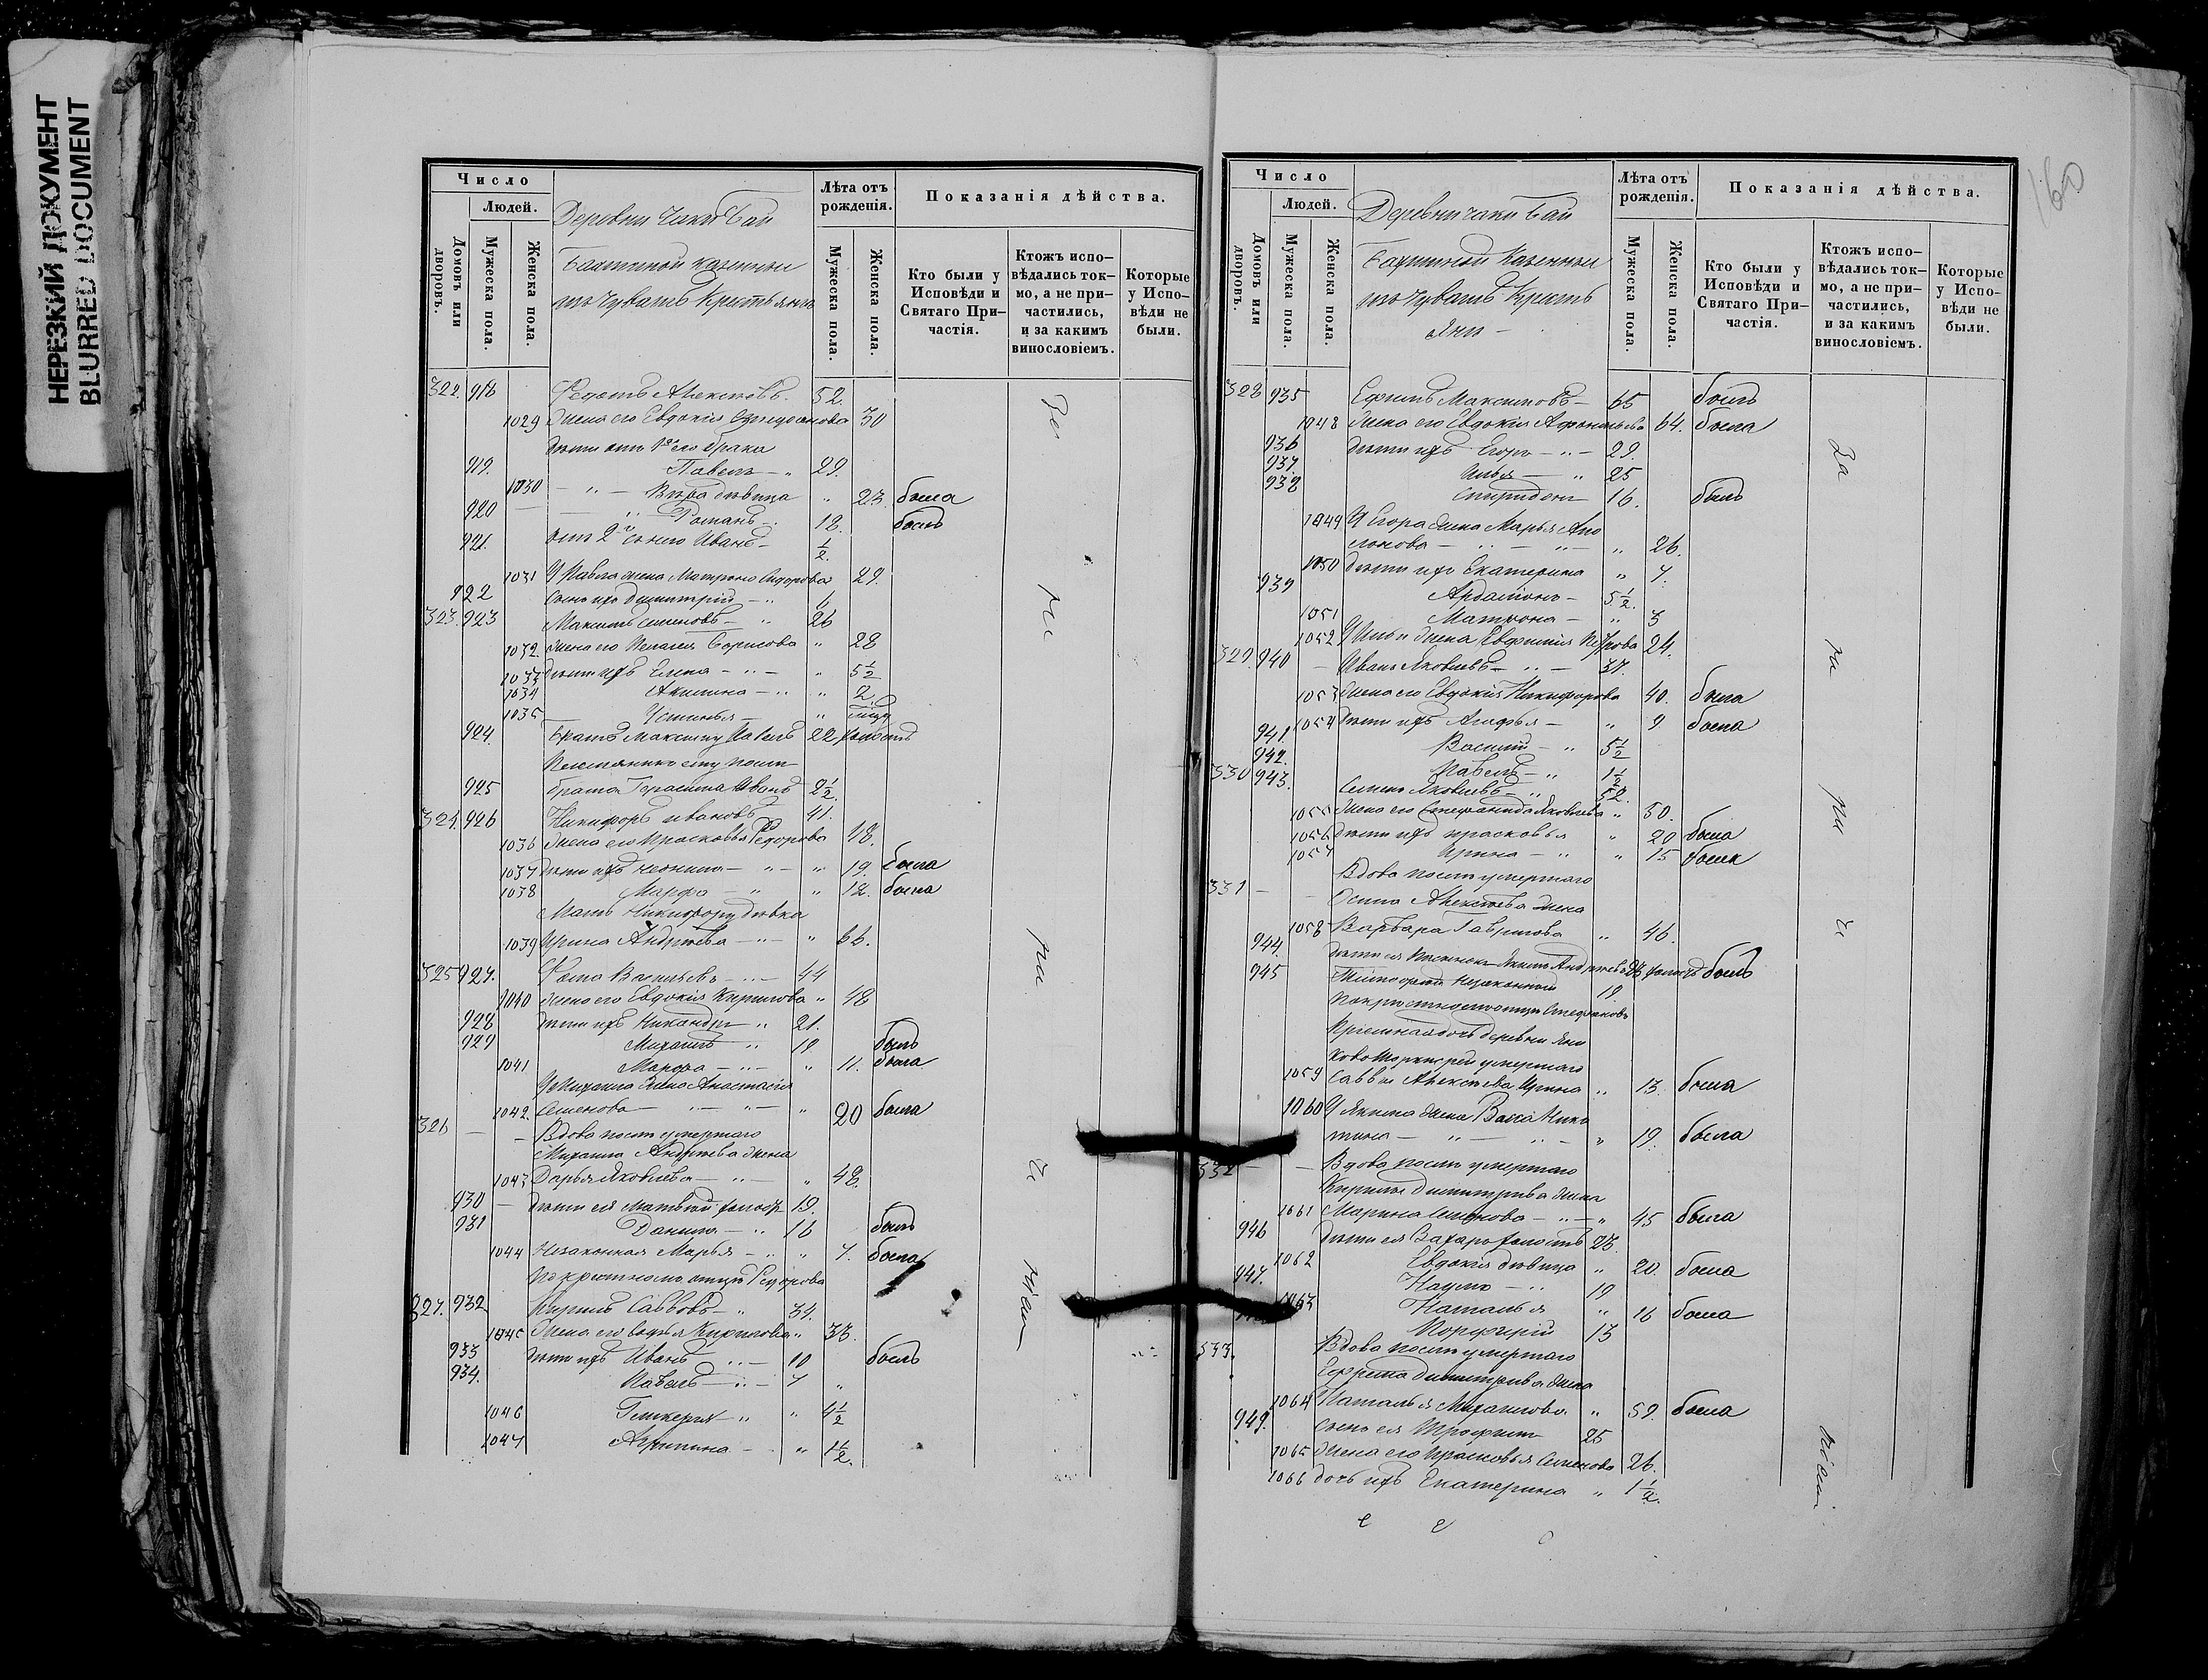 НЕРЕЗКИЙ ДОКУМЕНТ
BLURRED DOCUMENT
Число
Людей.
Домовъ или дворовъ.
Мужеска пола.
Женска пола.
Деревни
казенныи
Чувашъ Крестьяне
Лѣта отъ рожденія.
Мужеска пола.
Женска пола.
Показанія дѣйства.
Кто были у Исповѣди и Святаго Причастія.
Ктожъ исповѣдались токмо, а не причастились, и за какимъ винословіемъ.
Которые у Исповѣди не были.
322. 918 Федотъ Алексѣевъ 52.
1029 Жена его Евдокія 30
дѣти отъ 1го его брака
919. Павелъ — " 29.
1030 — " — Вѣра дѣвица " 23. была
920 Романъ 18. былъ
921. отъ 2го Иванъ — ½
1031 У Павла жена Матрона Сидорова 29.
922 Сынъ ихъ Димитрій — "
323. 923 Максимъ Семеновъ — " 26
1032. Жена его Пелагея Борисова " 28
1033 дѣти ихъ Елена — " — " 5½
1034 Акилина — " " 2
1035 Устинья — "
924. Братъ Максиму Павелъ 22 холостъ
Племянникъ ему
925 брата Герасима Иванъ 2½.
324. 926 Никифоръ Ивановъ 41.
1036 Жена его Прасковья Федорова 48.
1037 дѣти ихъ — " — " 19. была
1038 Марфа — " " 12. была
Мать Никифору дѣвка
1039 Ирина Андреева — " — " 66.
325 927. Фома Васильевъ — 44
1040 Жена его Евдокія Кирилова " 48
928 дѣти ихъ Никандръ " 21.
929 Михаилъ " 19. былъ
1041 Марфа — " — " 11. была
У Михаила жена Анастасія
1042. Семенова — " — " — " 20 была
326 — — Вдова послѣ умершаго
Михаила Андреева жена
1043 Дарья Яковлева — " — " 48.
930 — дѣти ея Матвѣй холостъ 19.
931 Данила — " 16 былъ
1044 Незаконная Марья — " " 7. была
по крестному отцу Федорова
327. 932 Кирилъ Саввовъ — " 34.
1045 Жена его Кирилова " 33.
933 дѣти ихъ Иванъ " — 10 былъ
934. Павелъ — " — 7 "
1046 Гликерья — " " 4½
1047 Агрипина — " 1½.
160
Число
Людей.
Домовъ или дворовъ.
Мужеска пола.
Женска пола.
Деревни
Казенныи
Чувашъ Кресть
яни —
Лѣта отъ рожденія.
Мужеска пола.
Женска пола.
Показанія дѣйства.
Кто были у Исповѣди и Святаго Причастія.
Ктожъ исповѣдались токмо, а не причастились, и за какимъ винословіемъ.
Которые у Исповѣди не были.
328 935 Максимовъ — 65 былъ
1048 Жена его Евдокія 64. была
936 дѣти ихъ Егоръ — " — 29.
937. Илья — " 25
938 Спиридонъ 16. былъ
1049 У Егора жена Марья
— " — " — " 26.
1050 дѣти ихъ Екатерина " 7.
939 Ардаліонъ — 5½.
1051 Матрона — " 3
1052 У Ильи жена Евфимія Петрова 24.
329. 940 — Иванъ Яковлевъ — " — 37.
1053 Жена его Евдокія Никифорова 40. была
1054 дѣти ихъ Агафья — " 9 была
941. Василій — " 5½
942. Павелъ — " 1½
330 943. Семенъ Яковлевъ — " 52.
1055 Жена его Степанида Яковлева " 50.
1056 дѣти ихъ Прасковья " 20 была
1057 Ирина — " " 15 была
331 — Вдова послѣ умершаго
Осипа Алексѣева жена
1058 Варвара Гаврилова " 46.
944. дѣти ея Якимъ Андреевъ холостъ былъ
945 Тимофей незаконный 18.
Крестная дочь деревни Яни
умершаго
1059 Саввы Алексѣева Ирина " 13. была
1060 У Якима жена Васса Ники
тина — " — " — " 19. была
332 — — Вдова послѣ умершаго
Кирилы Димитріева жена
1061 Марина Семенова — " — " 45 была
946 дѣти ея Захаръ холостъ 23.
1062 Евдокія дѣвица " 20. была
947. Наумъ — " 19
1063 Наталья " 16 была
Порфирій 13
333. Вдова послѣ умершаго
Ефрема Димитріева жена
1064 Наталья Михаилова " 59. была
949. Сынъ ея Трофимъ 25
1065 Жена его Прасковья Семенова 26.
1066 дочь ихъ Екатерина " 1½.